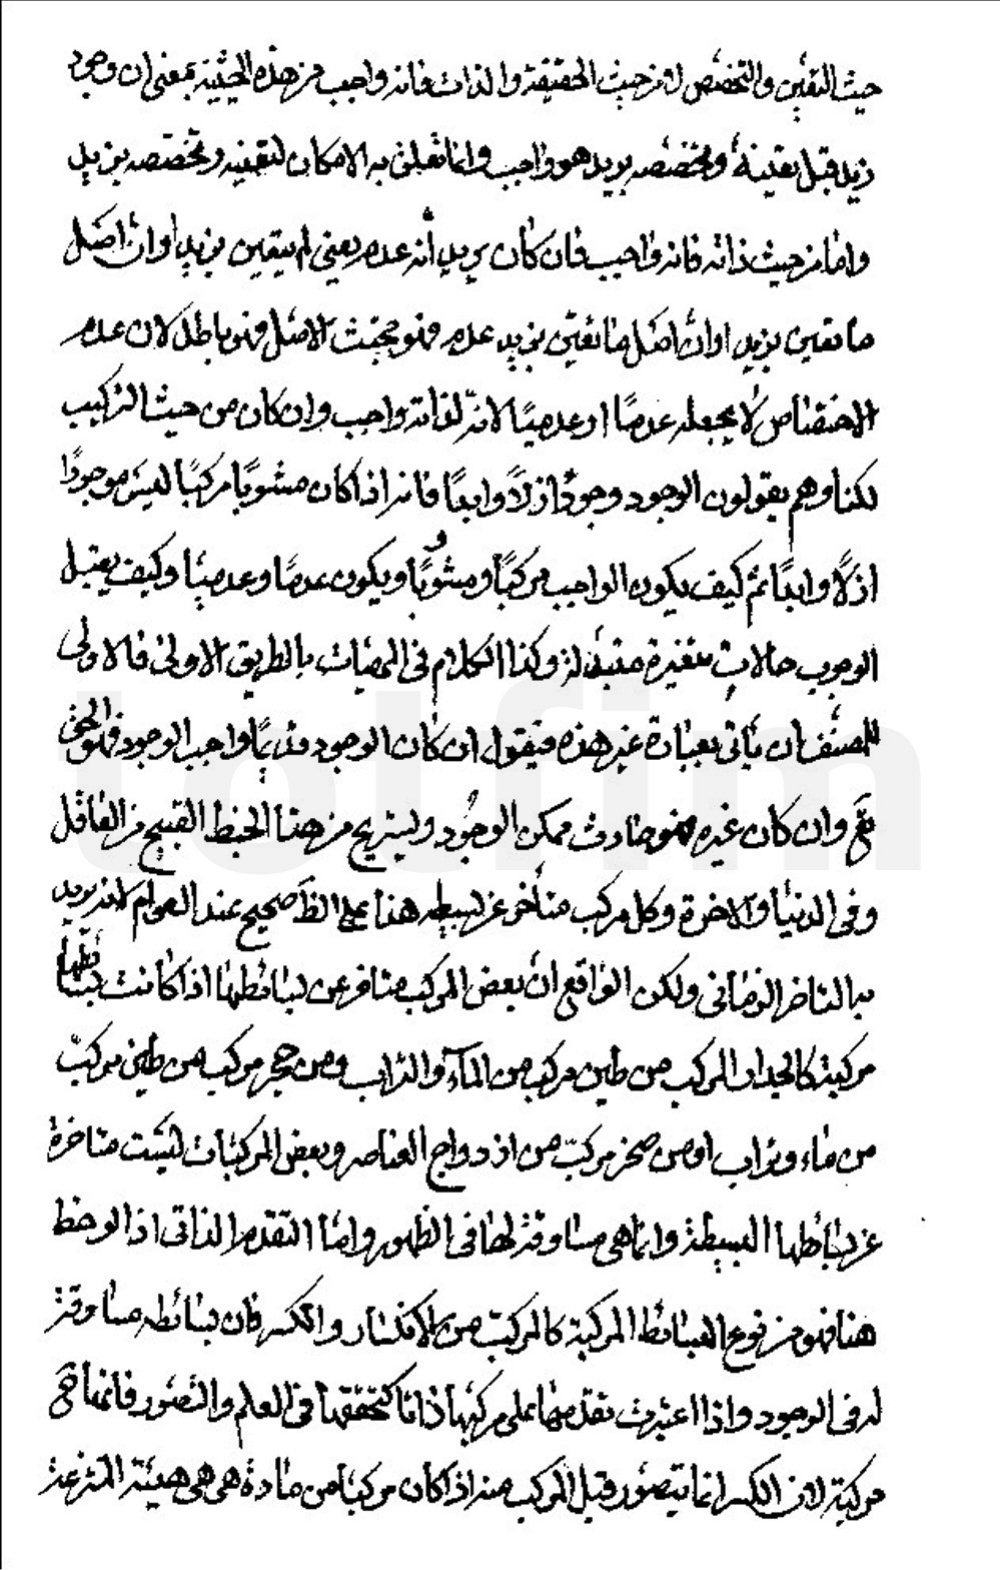 حيث التعين والتخصص لا من حيث الحقيقة والذات فانه واجب من هذه الحيثية بمعنى ان وجود
زيد قبل تعينه وتخصصه بزيد هو واجب وانما تعلق به الامكان لتعينه وتخصصه بزيد
واما من حيث ذاته فانه واجب فان كان يريد أنه عدم يعني لم يتعين بزيد او ان اصل
ما تعين بزيد او ان اصل ما تعين بزيد عدم فهو مجتث الاصل فهو باطل لان عدم
الاختصاص لا يجعله عدمًا او عدميًا لانه لذاته واجب وان كان من حيث التركيب
لكنا وهم يقولون الوجود وجودٌ ازلاً وابدًا فانه اذا كان مشوبًا مركبًا ليس موجودًا
ازلًا وابدًا ثم كيف يكون الواجب مركبًا ومشوبًا ويكون عدمًا وعدميًا وكيف يقبل
الوجوب حالات متغيرة متبدلة وكذا الكلام فى المهيات بالطريق الاولى فالاولى
للمصنف ان يأتى بعبارة غير هذه فيقول ان كان الوجود قديمًا واجب الوجود فهو الحق
تع وان كان غيره فهو حادث ممكن الوجود ويستريح من هذا الخبط القبيح من العاقل
وفى الدنيا والاخرة وكل مركب متأخر عن بسيطه هذا على الظ صحيح عند العوام لانه يريد
بالتاخر الزمانى ولكن الواقع ان بعض المركب متاخر عن بسائطها اذا كانت بسائطها
مركبة كالجدار المركب من طين مركب من المآء والتراب ومن حجر مركب من طين مركب
من ماء وتراب او من صخر مركب من ازدواج العناصر وبعض المركبات ليست متاخرة
عن بسائطها البسيطة وانما هى مساوقة لها فى الظهور واما التقدم الذاتى اذا لوحظ
هنا فهو من نوع البسائط المركبة كالمركب من الانكسار والكسر فان بسائطه مساوقة
له فى الوجود واذا اعتبرت تقدمها على مركبها ذاتا كتحققها فى العلم والتصور فانها هى
مركبة لان الكسر انما يتصور قبل المركب منه اذا كان مركبا من مادة هى هى هيئة المنتزعة